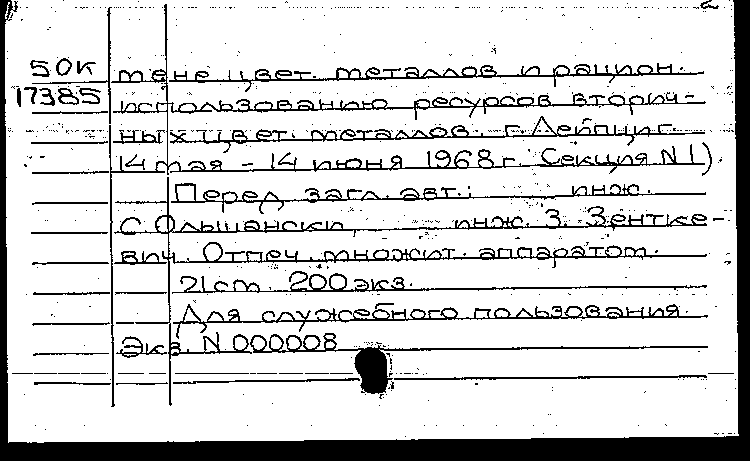 2
50К тене цвет. металлов и рацион.
17385 использованию ресурсов вторич-
ных цвет. металлов. г. Лейпциг.
14 мая - 14 июня 1968 г. Секция N 1).
Перед загл. авт.: инж.
С. Ольшански, инж. З. Зентке-
вич. Отпеч. множит. аппаратом.
21 ст. 200 экз.
Для служебного пользования.
Экз. N 000008